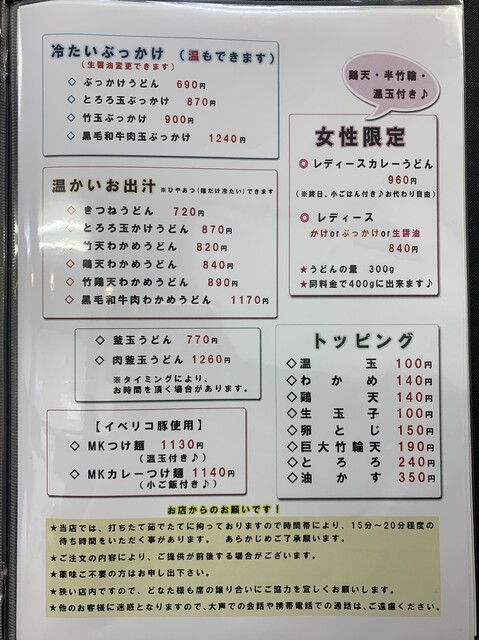 冷たいぶっかけ (温もできます)
(生醤油変更できます)
◇ ぶっかけうどん 690円
◇ とろろ玉ぶっかけ 870円
◇ 竹玉ぶっかけ 900円
◇ 黒毛和牛肉玉ぶっかけ 1240円
温かいお出汁 ※ひやあつ(麺だけ冷たい)できます
◇ きつねうどん 720円
◇ とろろ玉うどん 870円
◇ 竹天わかめうどん 820円
◇ 鶏天わかめうどん 840円
◇ 竹鶏天わかめうどん 890円
◇ 黒毛和牛肉わかめうどん 1170円
◇ 釜玉うどん 770円
◇ 肉釜玉うどん 1260円
※タイミングにより、
お時間を頂く場合があります。
【イベリコ豚使用】
◇ MKつけ麺 1130円
(温玉付き♪)
◇ MKカレーつけ麺 1140円
(小ご飯付き♪)
鶏天・半竹輪・
温玉付き♪
女性限定
◎ レディースカレーうどん
960円
(※終日、小ごはん付き♪お代わり自由)
◎ レディース
かけorぶっかけor生醤油
840円
★うどんの量 300g
★同料金で400gに出来ます♪
トッピング
◇温玉 100円
◇わかめ 140円
◇鶏天 140円
◇生玉子 100円
◇卵とじ 150円
◇巨大竹輪天 190円
◇とろろ 240円
◇油かす 350円
お店からのお願いです！
★当店では、打ちたて茹でたてに拘っておりますので時間帯により、15分〜20分程度の
待ち時間をいただく事があります。 あらかじめご了承願います。
★ご注文の内容により、ご提供が前後する場合がございます。
★薬味ご不要の方はお申し出下さい。
★狭い店内ですので、どなた様も席の譲り合いにご協力を宜しくお願いします。
★他のお客様に迷惑となりますので、大声での会話や携帯電話での通話は、ご遠慮ください。